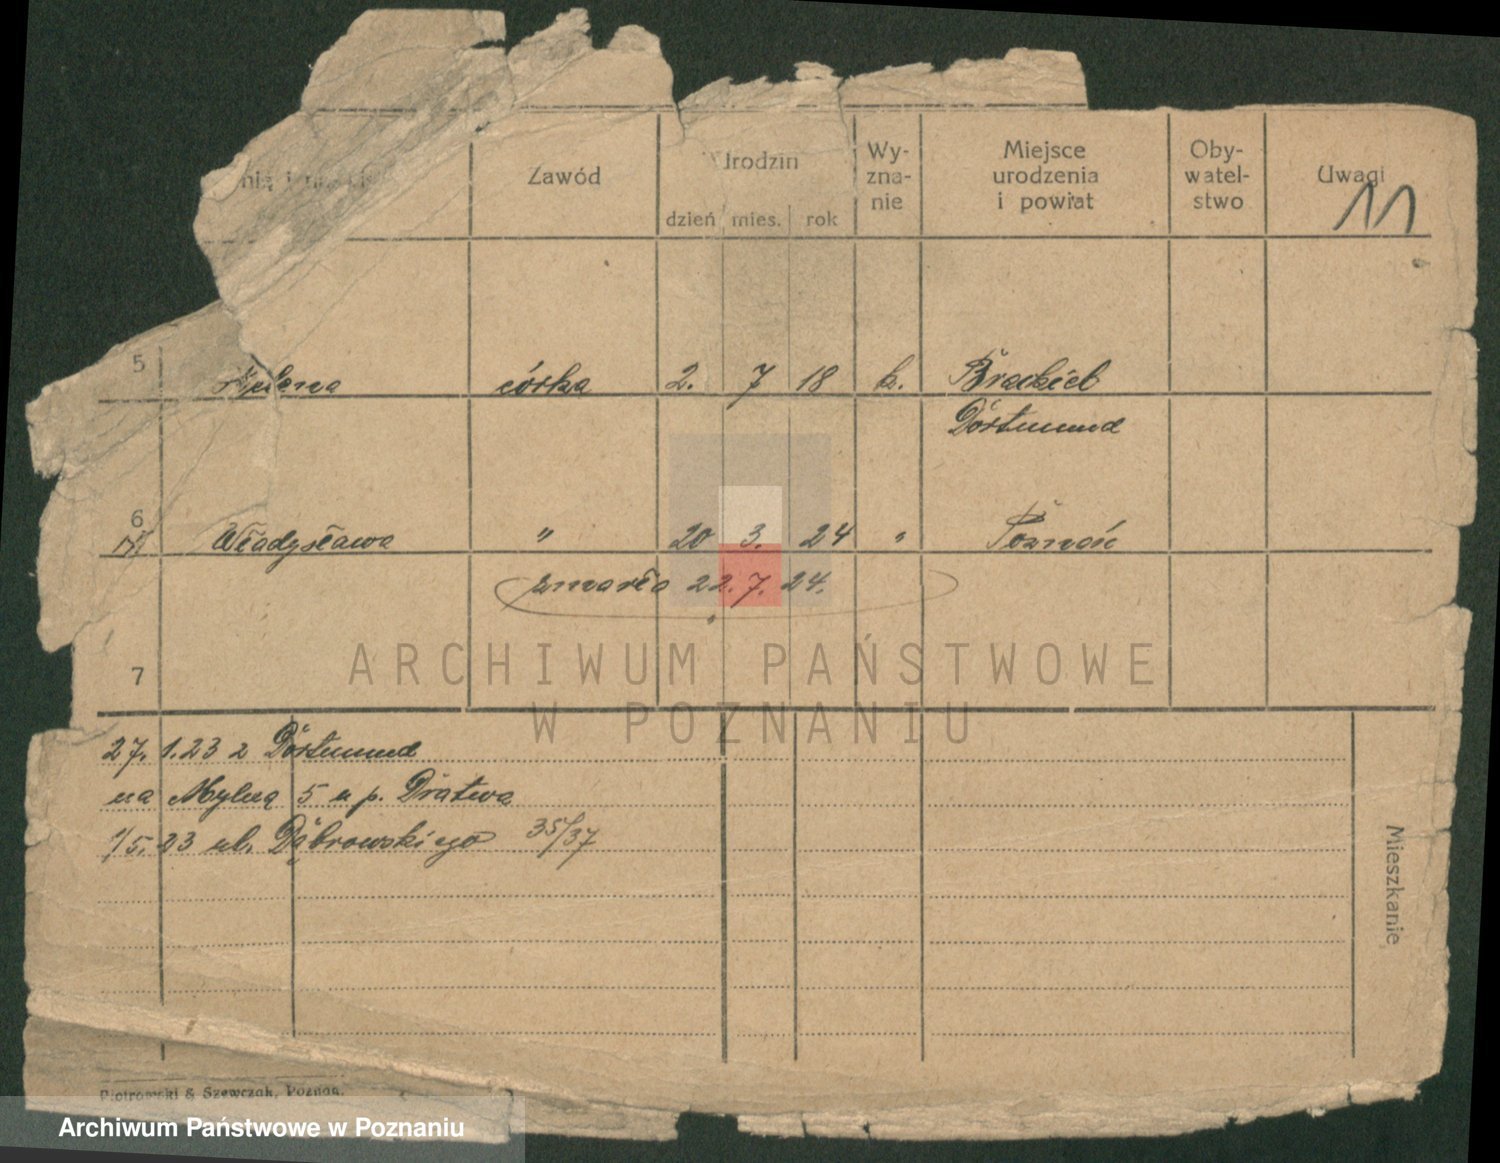 Zawód
Urodzin
dzień mies. rok
Wy-
zna-
nie
Miejsce
urodzenia
i powiat
Oby-
watel-
stwo
Uwagi
11
5 Helena córka 2. 7 18 k. Brackel
Dortmund
6 Władysława " 20 3. 24 " Poznań
zmarła 22.7.24.
7
27. 1.23 z Dortmund
na Mylną 5 u p. Dratwa
1/5.23 ul. Dąbrowskiego 35/37
Mieszkanie
Piotrowski & Szewczak, Poznań.
ARCHIWUM PAŃSTWOWE
W POZNANIU
Archiwum Państwowe w Poznaniu